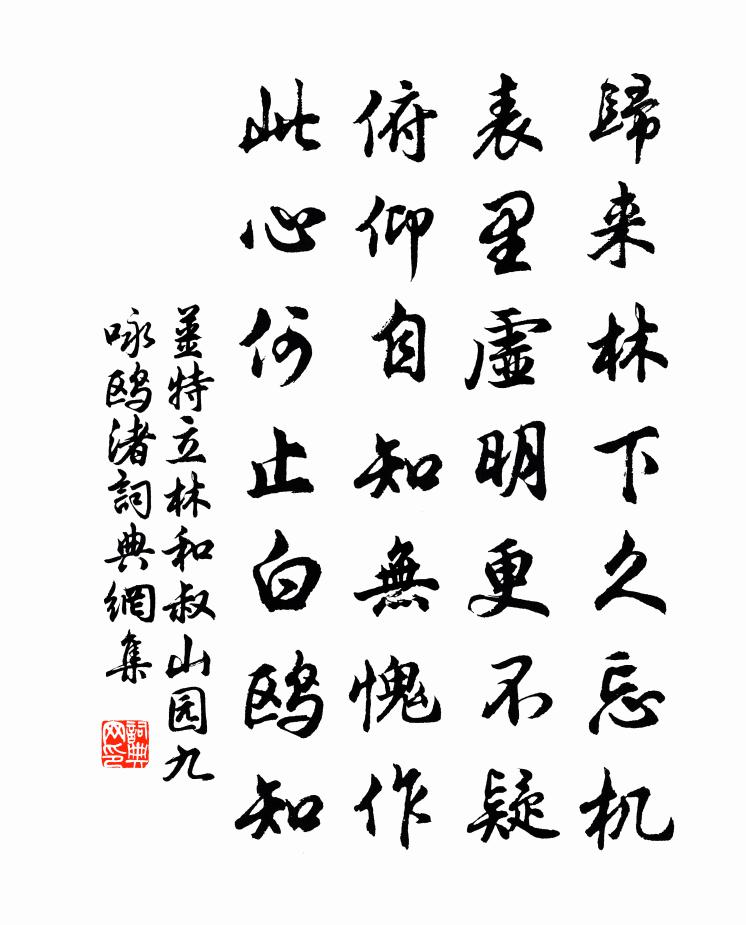 歸来林下久忘机
表里虛明更不疑
俯仰自知無愧作
此心何止白鸥知
姜特立林和叔山园九
咏鸥渚詞典網集
詞典网印